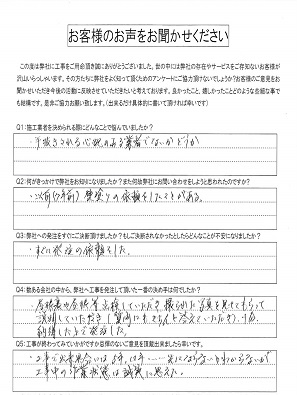 お客様のお声をお聞かせください
この度は弊社に工事をご用命頂き誠にありがとうございました。世の中には弊社の存在やサービスをご存知ないお客様が
沢山いらっしゃいます。その方たちに弊社をよく知って頂くためのアンケートにご協力頂けないでしょうか?お客様のご意見をお
聞かせいただき今後の活動に反映させていただきたいと考えております。良かったこと、嬉しかったことどのような些細な事で
も結構です。是非ご協力お願い致します。(出来るだけ具体的に書いて頂ければ幸いです)
Q1:施工業者を決められる際にどんなことで悩んでいましたか?
手抜きされる心配のある業者でないかどうか
Q2:何がきっかけで弊社をお知りになりましたか?また何故弊社にお問い合わせをしようと思われたのですか?
以前
の依頼をしたことがある。
Q3:弊社への発注をすぐにご決断頂けましたか?もしご決断されなかったとしたらどんなことが不安になりましたか?
すぐに発注の依頼をした。
Q4:数ある会社の中から、弊社へ工事を発注して頂いた一番の決め手は何でしたか?
点検していただき撮られた写真を見せてもらって
説明していただき
納得した上で発注した。
Q5:工事が終わってみていかがですか忌憚のないご意見を頂戴出来ましたら幸いです。
工事の出来具合いは
工事中の作業状態は誠実に思えた。